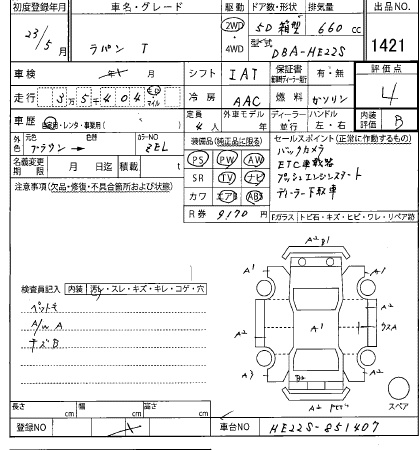 初度登録年月 車名・グレード 駆動 ドア数・形状 排気量 出品NO.
23/5月 ラパン T 2WD 4WD 5D 箱型 660cc 1421
型式 DBA-HE22S
車検 年 月 シフト IAT 保証書 有・無 評価点
走行 35404 km マイル 冷房 AAC 燃料 ガソリン 4
車歴 自家用・レンタ・事業用( ) 定員 4人 外車モデル 年 ディーラー 並行 ハンドル 左・右 内装評価 B
外色 元色 ブラウン 色替 カラーNO ZEL 装備品(純正品に限る) セールスポイント(正常に作動するもの)
名義変更期限 月 日迄 積載 t PS PW AW バックカメラ
注意事項(欠品・修復・不具合箇所および状態) SR TV ナビ ETC車載器
カワ エアB ABS プッシュエンジンスタート
R券 9170円 ディーラー下取車
Fガラス トビ石・キズ・ヒビ・ワレ・リペア跡
検査員記入 内装 汚レ・スレ・キズ・キレ・コゲ・穴
A/W A
キズB
A2
A1 A1
A2 A1 A2
A2 A2
A2
スペア
長さ cm 幅 cm 高さ cm
登録NO 車台NO HE22S-851407